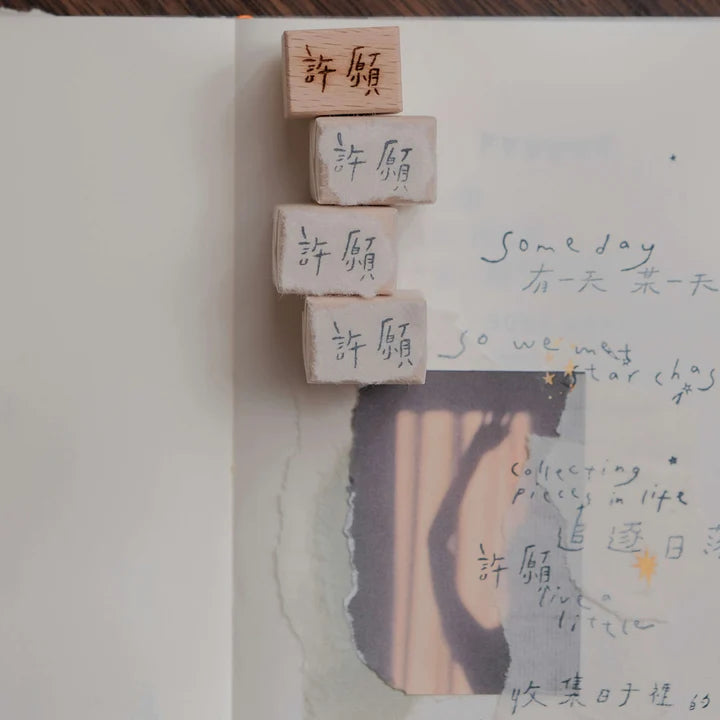 許願
許願
許願
許願
someday
有一天 某一天
so we met
star chas
collecting
pieces in life
追逐日落
許願
live a
little
收集日子裡的